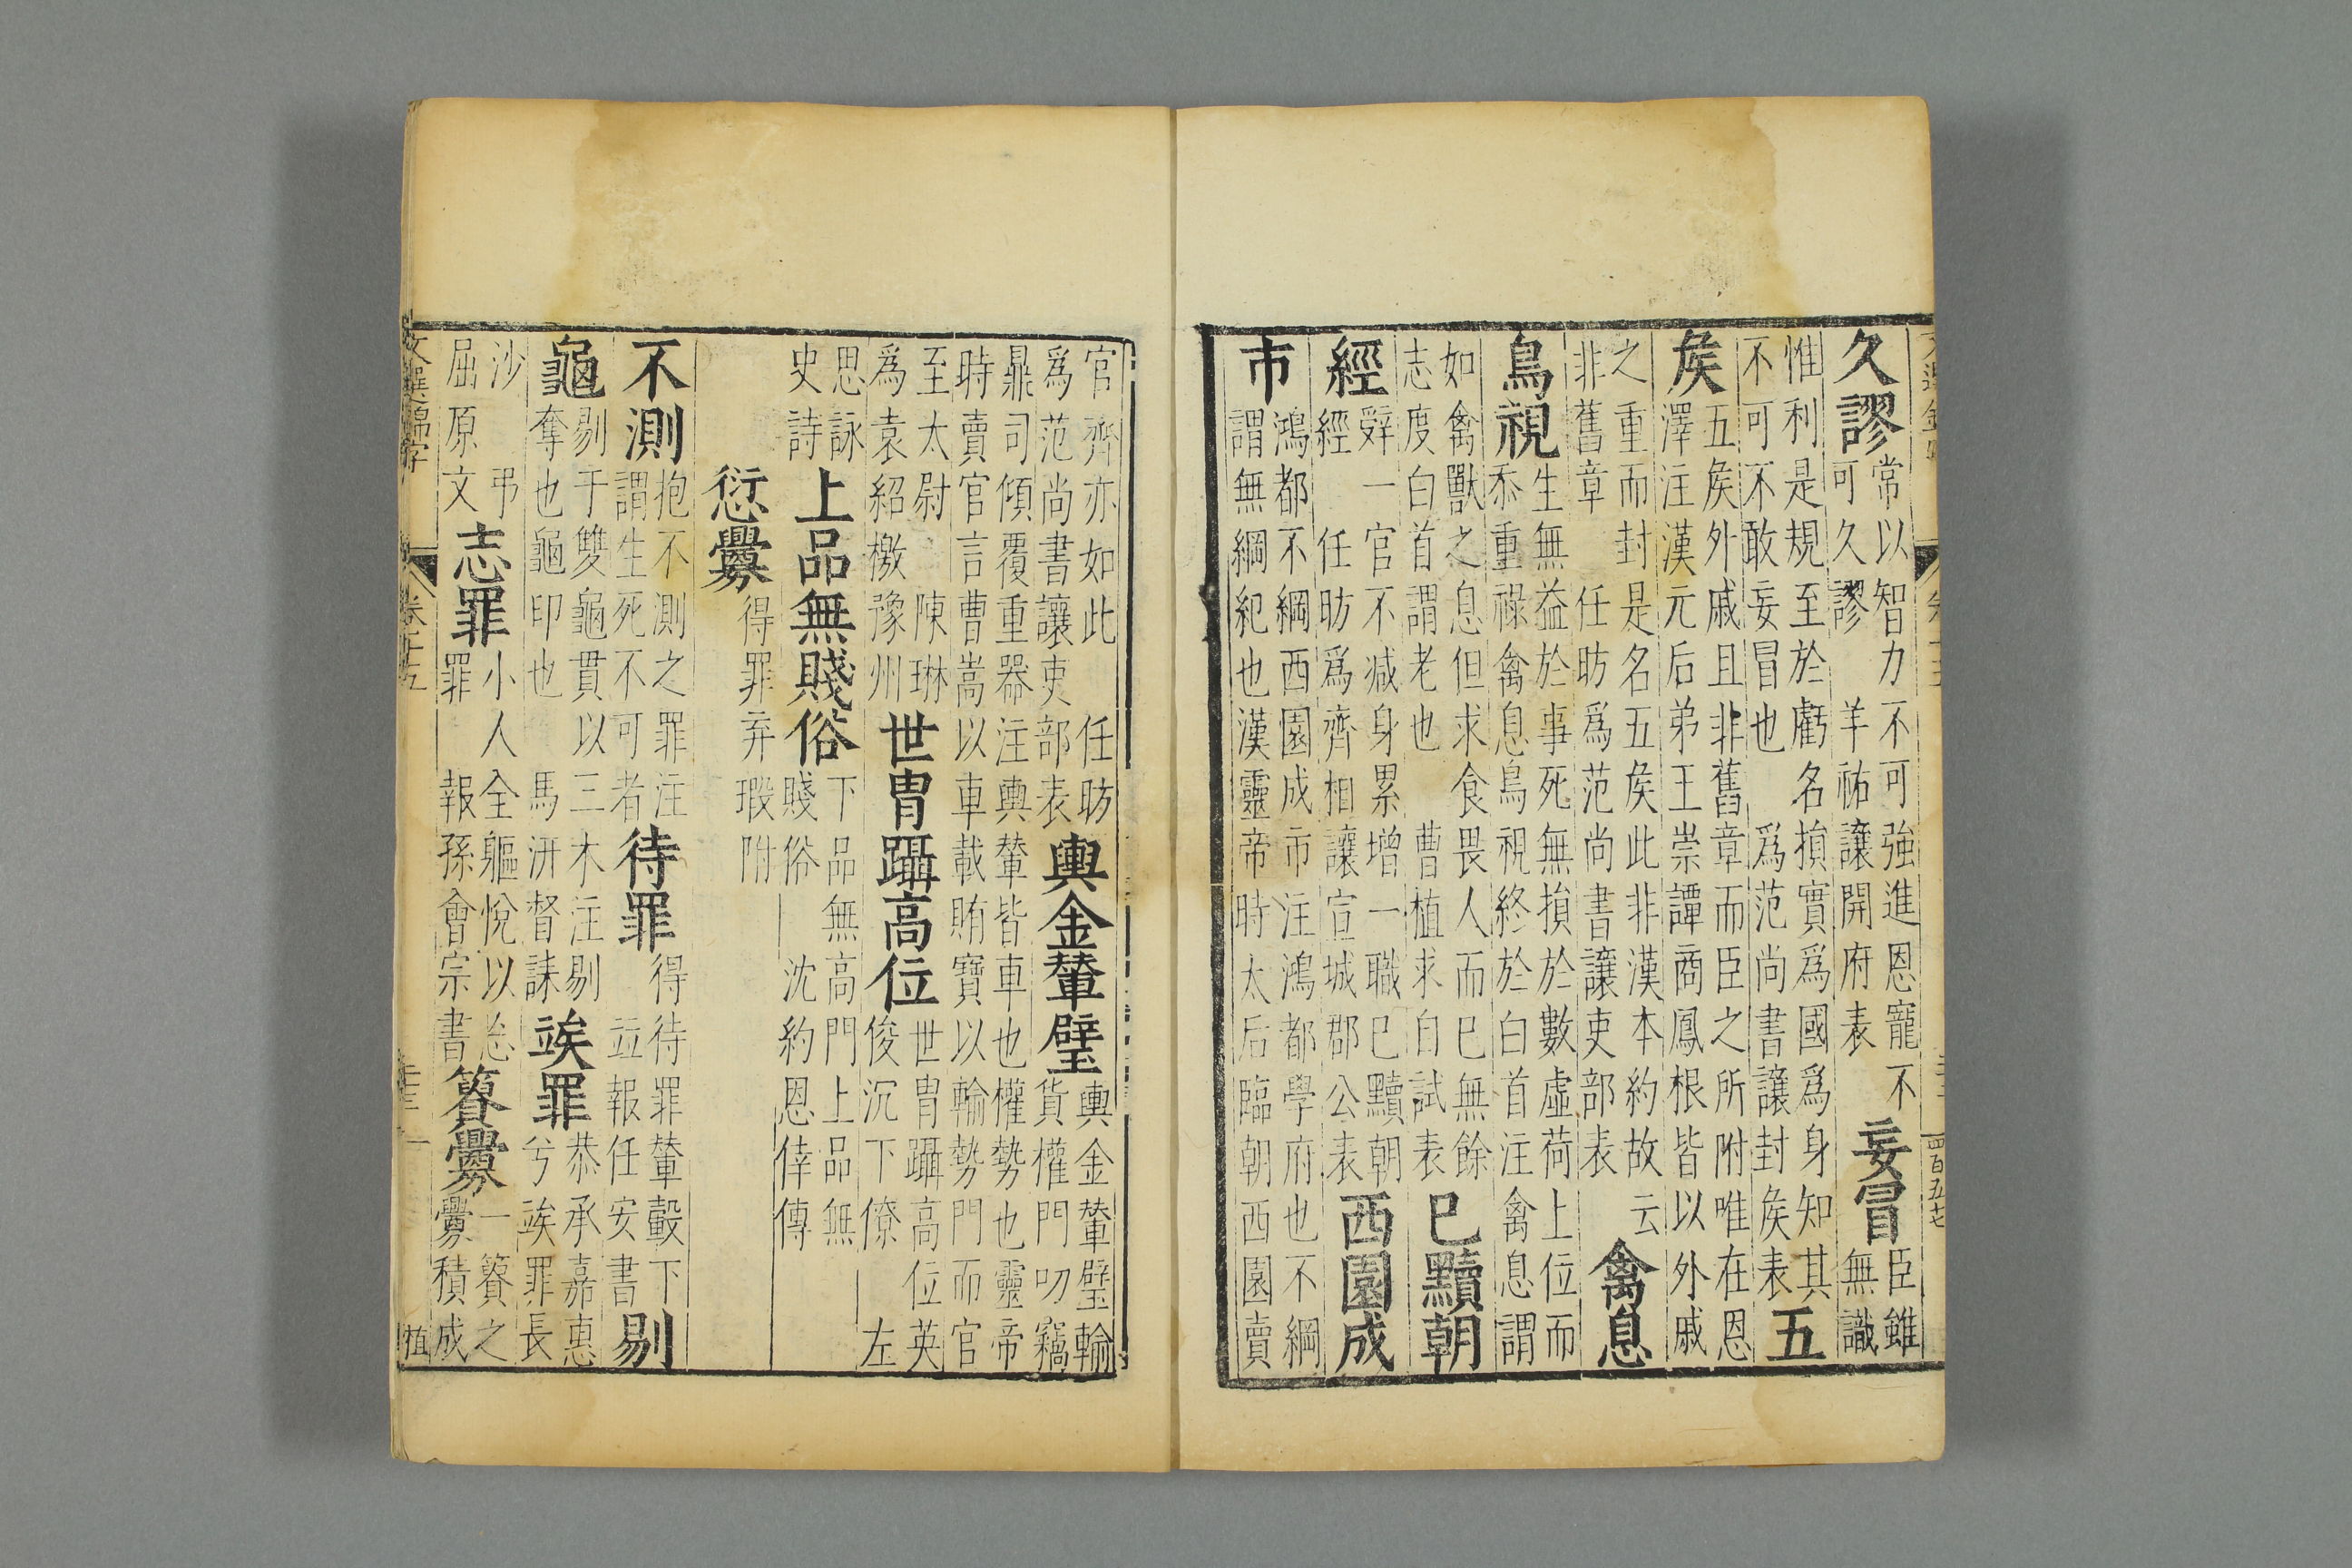 久謬常以智力不可強進恩寵不可久謬 羊祜讓開府表妄冒臣雖無識
惟利是規至於虧名損實爲國爲身知其不可不敢妄冒也 爲范尚書讓封矦表五
矦五矦外戚且非舊章而臣之所附唯在恩澤注漢元后弟王崇譚商鳳根皆以外戚
之重而封是名五矦此非漢本約故云非舊章 任昉爲范尚書讓吏部表禽息
鳥視生無益於事死無損於數虛荷上位而忝重祿禽息鳥視終於白首注禽息謂
如禽獸之息但求食畏人而已無餘志度白首謂老也 曹植求自試表已黷朝
經辤一官不減身累增一職已黷朝經 任昉爲齊相讓宣城郡公表西園成
市鴻都不綱西園成市注鴻都學府也不綱謂無綱紀也漢靈帝時太后臨朝西園賣
四百五七
官齊亦如此 任昉爲范尚書讓吏部表輿金輦璧輿金輦璧輸貨權門叨竊
鼎司傾覆重器注輿輦皆車也權勢也靈帝時賣官言曹嵩以車載賄寶以輸勢門而官
至太尉 陳琳爲袁紹檄豫州世胄躡高位世胄躡高位英俊沉下僚 左
思詠史詩上品無賤俗下品無高門上品無賤俗 沈約恩倖傳
愆釁得罪弃瑕附
不測抱不測之罪注謂生死不可者待罪得待罪輦轂下 竝報任安書剔
龜剔于雙龜貫以三木注剔奪也龜印也 馬汧督誄竢罪恭承嘉惠兮竢罪長
沙 弔屈原文志罪小人全軀悅以忘罪 報孫會宗書簣釁一簣之釁積成
文選錦字 卷十五 植